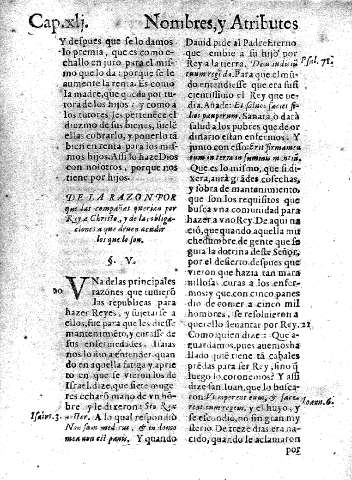 Cap.xlj. Nombres, y Atributes
Y despues que se lo damos
lo premia, que es como e-
challo en juro para el mis-
mo que lo da: porque se le
aumente la renta. Es como
la madre, que queda por tu-
tora de los hijos: y como a
los tutores les pertenece el
diezmo de sus bienes, suele
ella cobrarlo, y ponerlo tã-
bien en renta para los mis-
mos hijos. Assi lo haze Dios
con nosotros, porque nos
tiene por hijos.
DE LA RAZON POR
que las compañas querian por
Rey a Christo, y de las obliga-
ciones a que deuen acudir
los que lo son.
§. V.
20 VNa de las principales
razones que tuuierõ
las republicas para
hazer Reyes, y sujetarse a
ellos, fue para que les diesse
mantenimiẽto, y curasse de
sus enfermedades. Isaias
nos lo dio a entender, quan
do en aquella fatiga y aprie
to en que se vieron los de
Israel, dize, que siete muge
res echarõ mano de vn hõ-
bre, y le dixeron: Sis Rex
Isaiæ.3. noster. A lo qual respondio:
Non sum medicus, & in domo
mea non est panis. Y quando
Dauid pide al Padre eterno
que embie a su hijo por
Rey a la tierra. Deus iudicium Psal. 71.
tuum regi da. Para que el mũ-
do entendiesse que era suf-
ficientissimo el Rey que pe-
dia. Añade: Et saluos faciet fi-
lios pauperum. Sanara, o dará
salud a los pobres que de or
dinario estan enfermos. Y
junto con esso: Erit firmamen
tum in terra in summis mõtiũ.
Que es lo mismo, que si di-
xera, aurá grãdes cosechas,
y sobra de mantenimiento,
que son los requisitos que
busca vna comunidad para
hazer a vno Rey. De aqui na
ció, que quando aquella mu
chedumbre de gente que se
guia la doctrina deste Señor,
por el desierto, despues que
vieron que hazia tan mara
uillosas curas a los enfer-
mos; y que con cinco panes
dio de comer a cinco mil
hombres, se resoluieron a
quererlo leuantar por Rey. 21
Como quien dize: Que a-
guardamos, pues auemos ha
llado quiẽ tiene tã cabales
prendas para ser Rey, sino q̃
luego lo coronemos? Y assi
dize san Iuan, que lo busca-
ron. Vt raperent eum, & face Ioann.6.
rent eum regem, y el huyo, y
se escondio, no sin gran my
sterio. De treze dias era na-
cido, quando le aclamaron
por